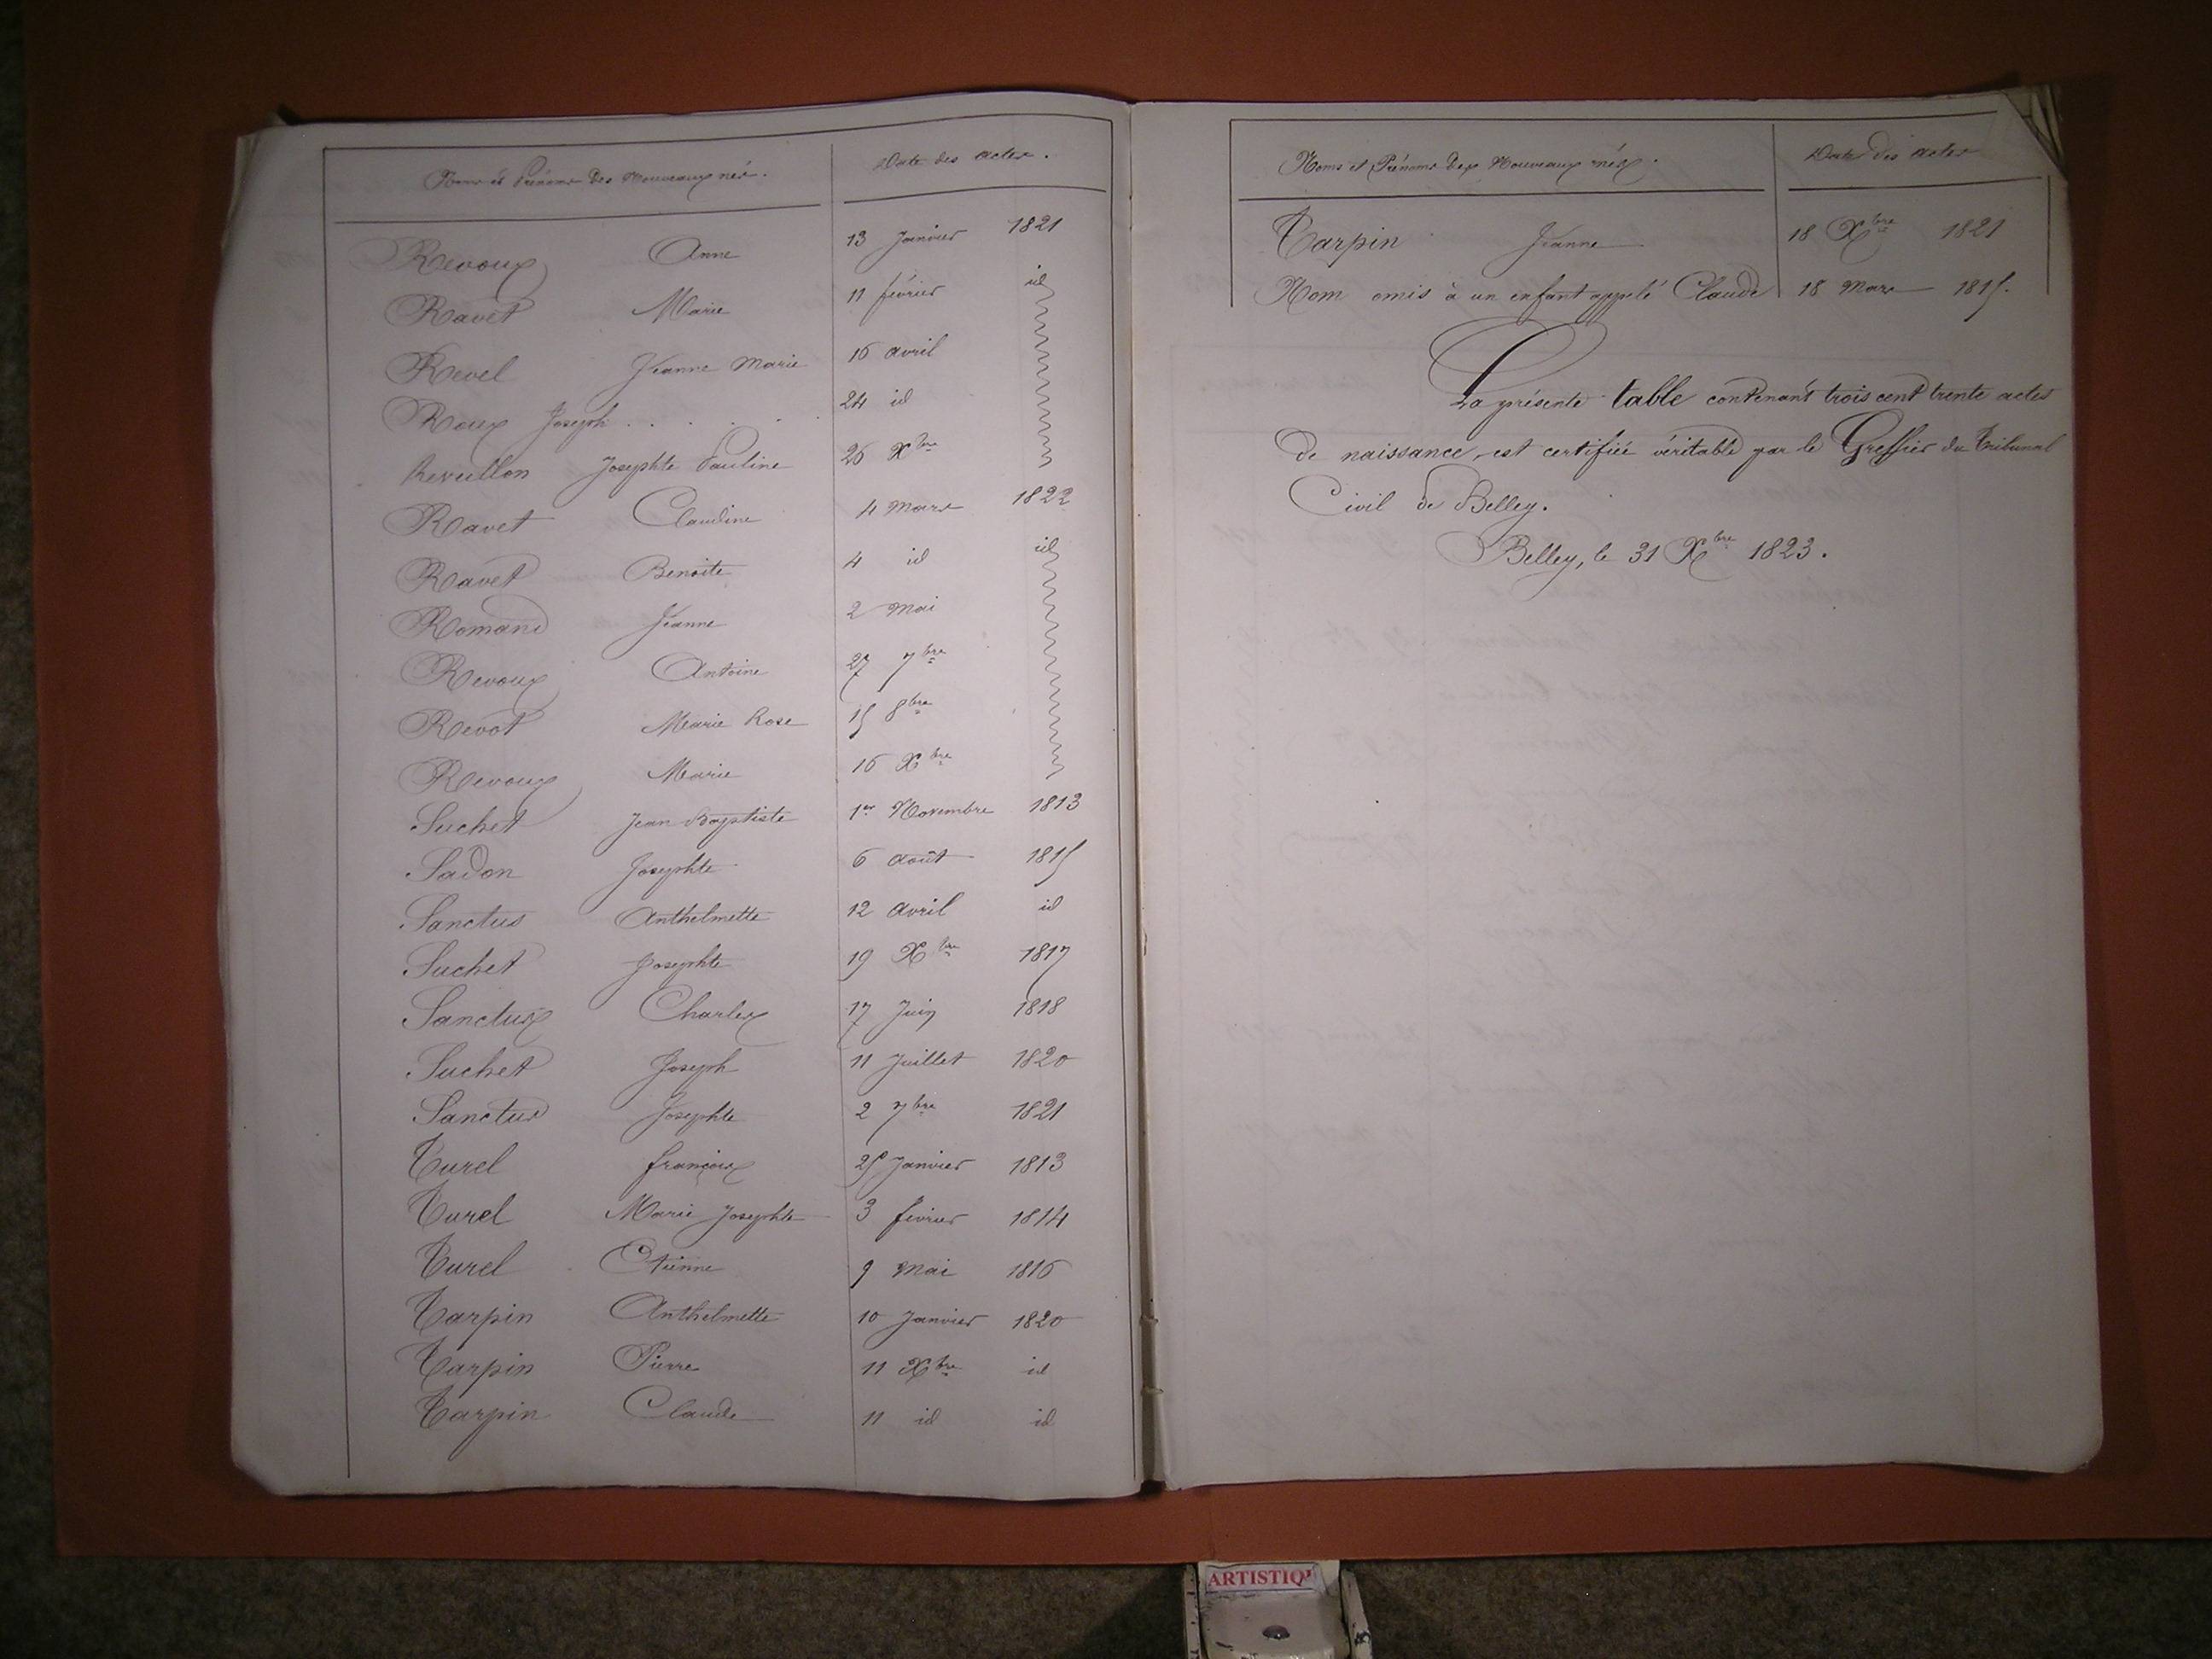 Noms et Prénoms des Nouveaux nés. Date des actes.
Revoux Anne 13 Janvier 1821
Ravet Marie 11 février id
Revel Jeanne Marie 16 avril
Roux Joseph . . . . . 24 id
Reveillon Josephte Pauline 26 Xbre
Ravet Claudine 4 Mars 1822
Ravet Benoite 4 id id
Romand Jeanne 2 Mai
Revoux Antoine 27 7bre
Revot Marie Rose 15 8bre
Revoux Marie 16 Xbre
Suchet Jean Baptiste 1er Novembre 1813
Sadon Josephte 6 août 1815
Sanctus Anthelmette 12 avril id
Suchet Josephte 19 Xbre 1817
Sanctus Charles 17 Juin 1818
Suchet Joseph 11 Juillet 1820
Sanctus Josephte 2 7bre 1821
Turel françois 25 Janvier 1813
Turel Marie Josephte 3 février 1814
Turel Etienne 9 Mai 1816
Tarpin Anthelmette 10 Janvier 1820
Tarpin Pierre 11 Xbre id
Tarpin Claude 11 id id
Noms et Prénoms des Nouveaux nés. Date des actes
Tarpin Jeanne 18 Xbre 1821
Nom omis à un enfant appelé Claude 18 Mars 1815.
La présente table contenant trois cent trente actes
de naissance, est certifiée véritable par le Greffier du Tribunal
Civil de Belley.
Belley, le 31 Xbre 1823.
ARTISTIQ'